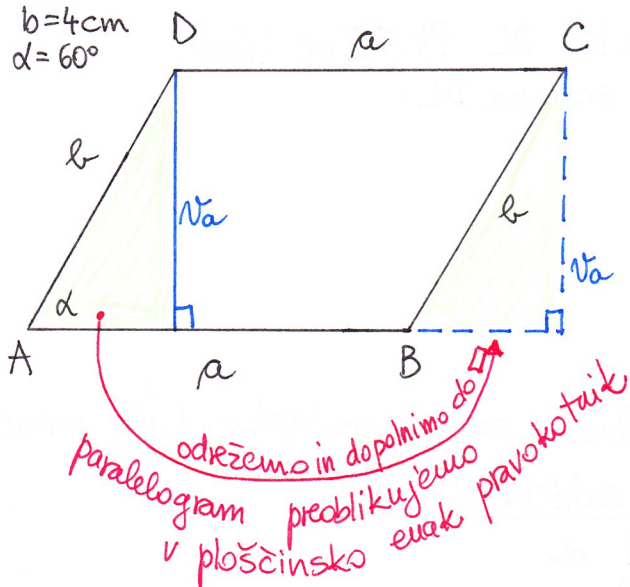 b=4cm
α=60°
D
a
C
b
va
b
va
α
A
a
B
odrežemo in dopolnimo do ▯
paralelogram preoblikujemo
v ploščinsko enak pravokotnik